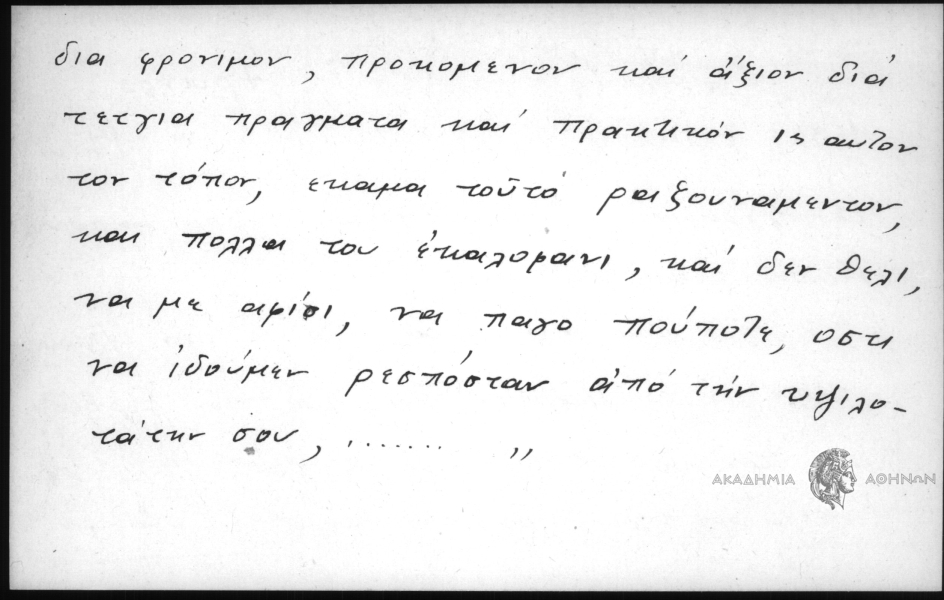 δια φρονιμον, προκομενον και άξιον διά
τετγια πραγματα και πρακτικόν ις αυτον
τον τόπον, εκαμα τοῦτό ραιξουναμεντον,
και πολλα του ἐκαλοφανι, καί δεν θελι,
να με αφίσι, να παγο πούποτε, οστι
να ἰδούμεν ρεσπόσταν ἀπό τήν υψιλο-
τάτην σου, ........ ,,
ΑΚΑΔΗΜΙΑ ΑΘΗΝΩΝ